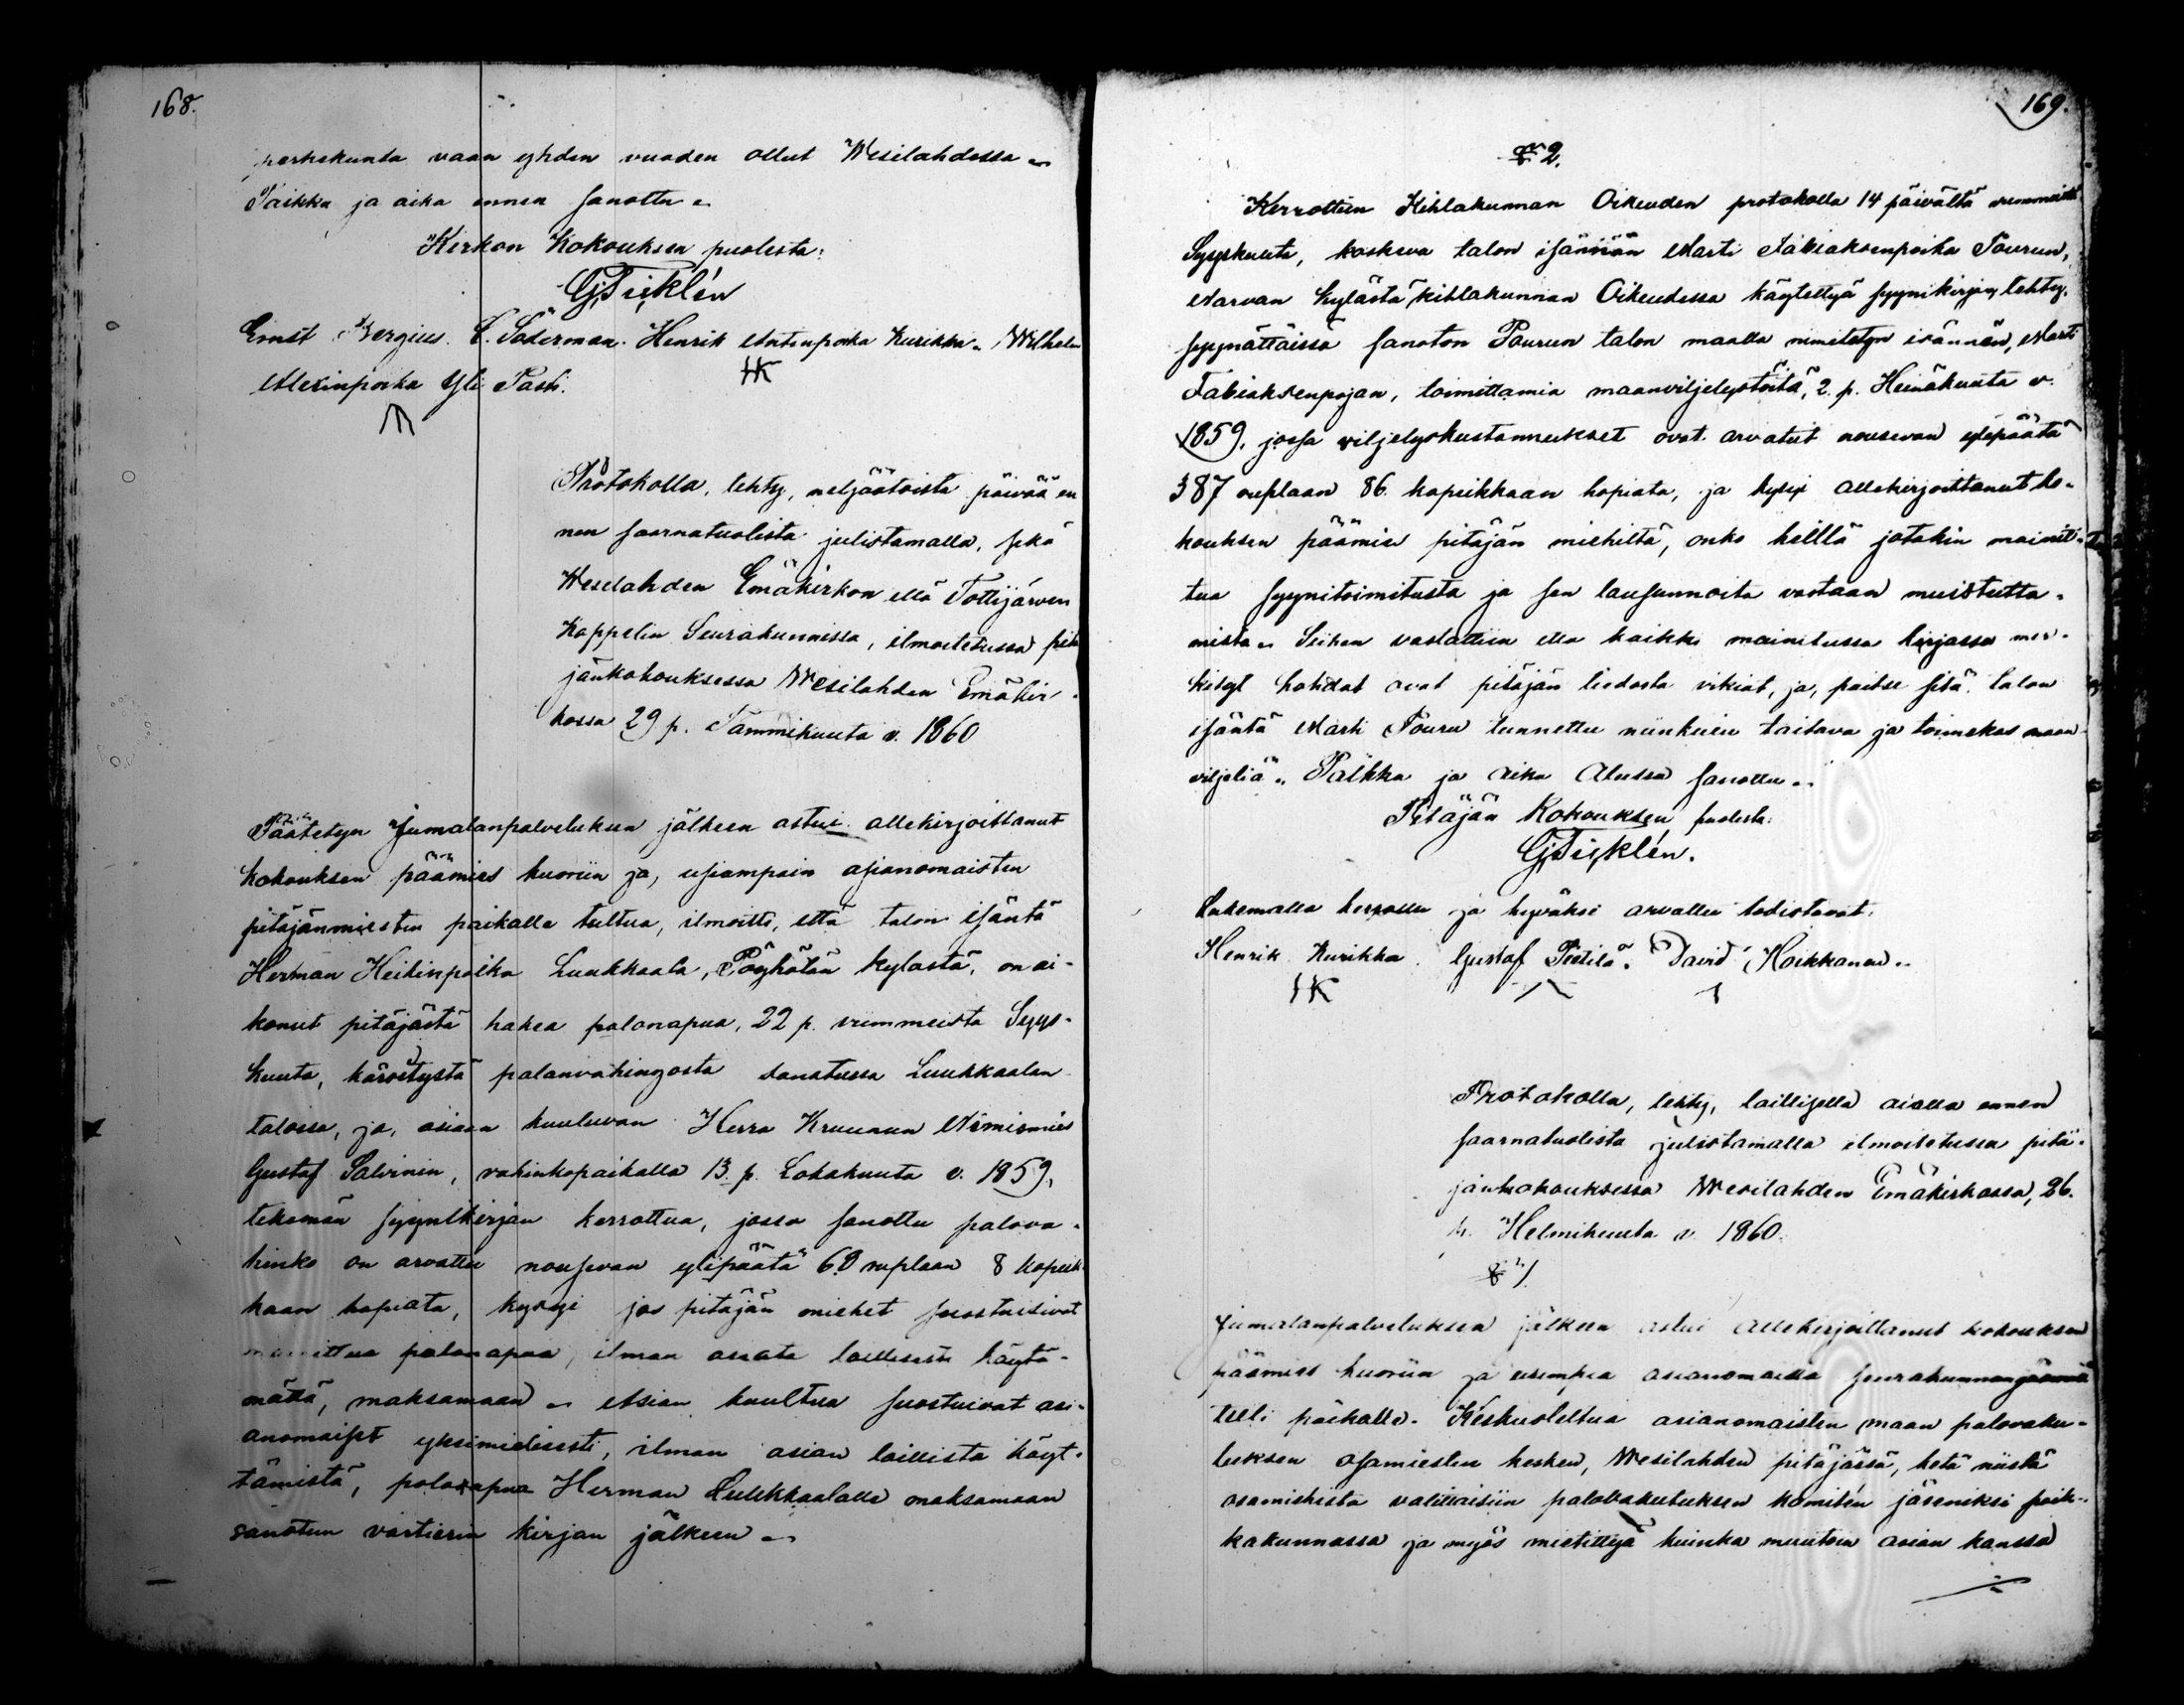 168.
perhekunta vaan yhden vuoden ollut Wesilahdessa.
Paikka ja aika ennen sanottu.
Kerkon Kokouksen puolesta:
Ernst Bergius. C. Söderman. Henrik Antinpoika Kurikka. Wilhelm
Alexinpoika Yli Pasti.
HK
Protokolla, tehty, neljäätoista päivää en
nen saarnatuolista julistamalla, sekä
Wesilahden Emäkirkon että Tottijärven
Kappelin Seurakunnissa, ilmoitetussa pitä
jänkokouksessa Wesilahden Emäkir-
kossa 29 p. Tammikuuta v. 1860
Päätetyn Jumalanpalveluksen jälkeen astui allekirjoittanut
kokouksen päämies kuoriin ja, usiampain asianomaisten
pitäjänmiesten paikalla tultua, ilmoitti, että talon isäntä
Herman Heikinpoika Luukkaala, Pöyhölän kylästä, on ai-
konut pitäjästä hakea palonapua, 22 p. viimmeista Syys-
kuuta, kärsitystä palanvahingosta sanatussa Luukkaalan
talossa, ja, asiaan kuuluvan Herra Kruunun Nimismies
Gustaf Salvinin, vahinkopaikalla 13. p. Lokakuuta v. 1859,
tekemän syynikirjan kerrottua, jossa sanottu palova-
hinko on arvattu nousevan ylipäätä 60 ruplaan 8 kopeik-
kaan hopiata, kysyi jos pitäjän miehet suostuisivat
mainittua palonapua, ilman asiata laillisesti käytä-
mättä, maksamaan. Asian kuultua suostuivat asi-
anomaiset yksimielisesti, ilman asian laillista käyt-
tämistä, palonapua Herman Luukkaalalle maksamaan
sanotun vartierin kirjan jälkeen.
169.
§ 2.
Kerrottiin Kihlakunnan Oikeuden protokolla 14 päivältä viimmeistä
Syyskuuta, koskeva talon isännän Marti Fabiaksenpoika Tourun,
Narvan kylästä kihlakunnan Oikeudessa käytettyä syynikirjaa, tehty,
syynättäissä sanoton Tourun talon maalla nimitetyn isännän, Marti
Fabiaksenpojan, toimittamia maanviljelystöitä, 2. p. Heinäkuuta v.
1859, jossa viljelyskustannukset ovat arvatut nousevan ylipäätä
387 ruplaan 86. kopeikkaan hopiata, ja kysyi allekirjoittanut ko-
kouksen päämies pitäjän miehiltä, onko heillä jotakin mainit-
tua syynitoimitusta ja sen lausunnoita vastaan muistutta-
mista. Siihen vastattiin että kaikki mainitussa kirjassa mer-
kityt kohdat ovat pitäjän tiedosta vikiat, ja, paitse sitä, talon
isäntä Marti Touru tunnettu niinkuin taitava ja toimekas maan
viljeliä. Paikka ja aika Alussa sanottu.
Pitäjän Kokouksen puolesta:
Lukemalla kerrottu ja hyväksi arvattu todistavat.
Henrik Kurikka. Gustaf Pietilä. David Hoikkanen.
HK
Protokolla, tehty, laillisella aialla ennen
saarnatuolista julistamalla ilmoitetussa pitä-
jänkokouksessa Wesilahden Emäkirkossa, 26.
p. Helmikuuta v. 1860.
§ 1.
Jumalanpalveluksen jälkeen astui Allekirjoittanut kokouksen
päämies kuoriin ja usimpia asianomaisia seurakunnan jäseniä
tuli paikalle. Keskusteltua asianomaisten maan palovaku-
tuksen osamiesten kesken, Wesilahden pitäjässä, ketä niistä
osamiehistä valittaisiin palovakutuksen komitén jäseniksi paik-
kakunnassa ja myös mietittyä kuinka muutoin asian kanssa